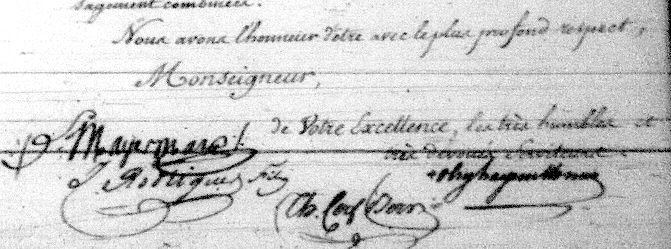 sagement combinées.
Nous avons l'honneur d'être avec le plus profond respect,
Monseigneur,
de Votre Excellence, les très humbles et
très dévoués Serviteurs.
S. Mayer Marx
J. Rodrigues Fils
Ch. Cerf Berr